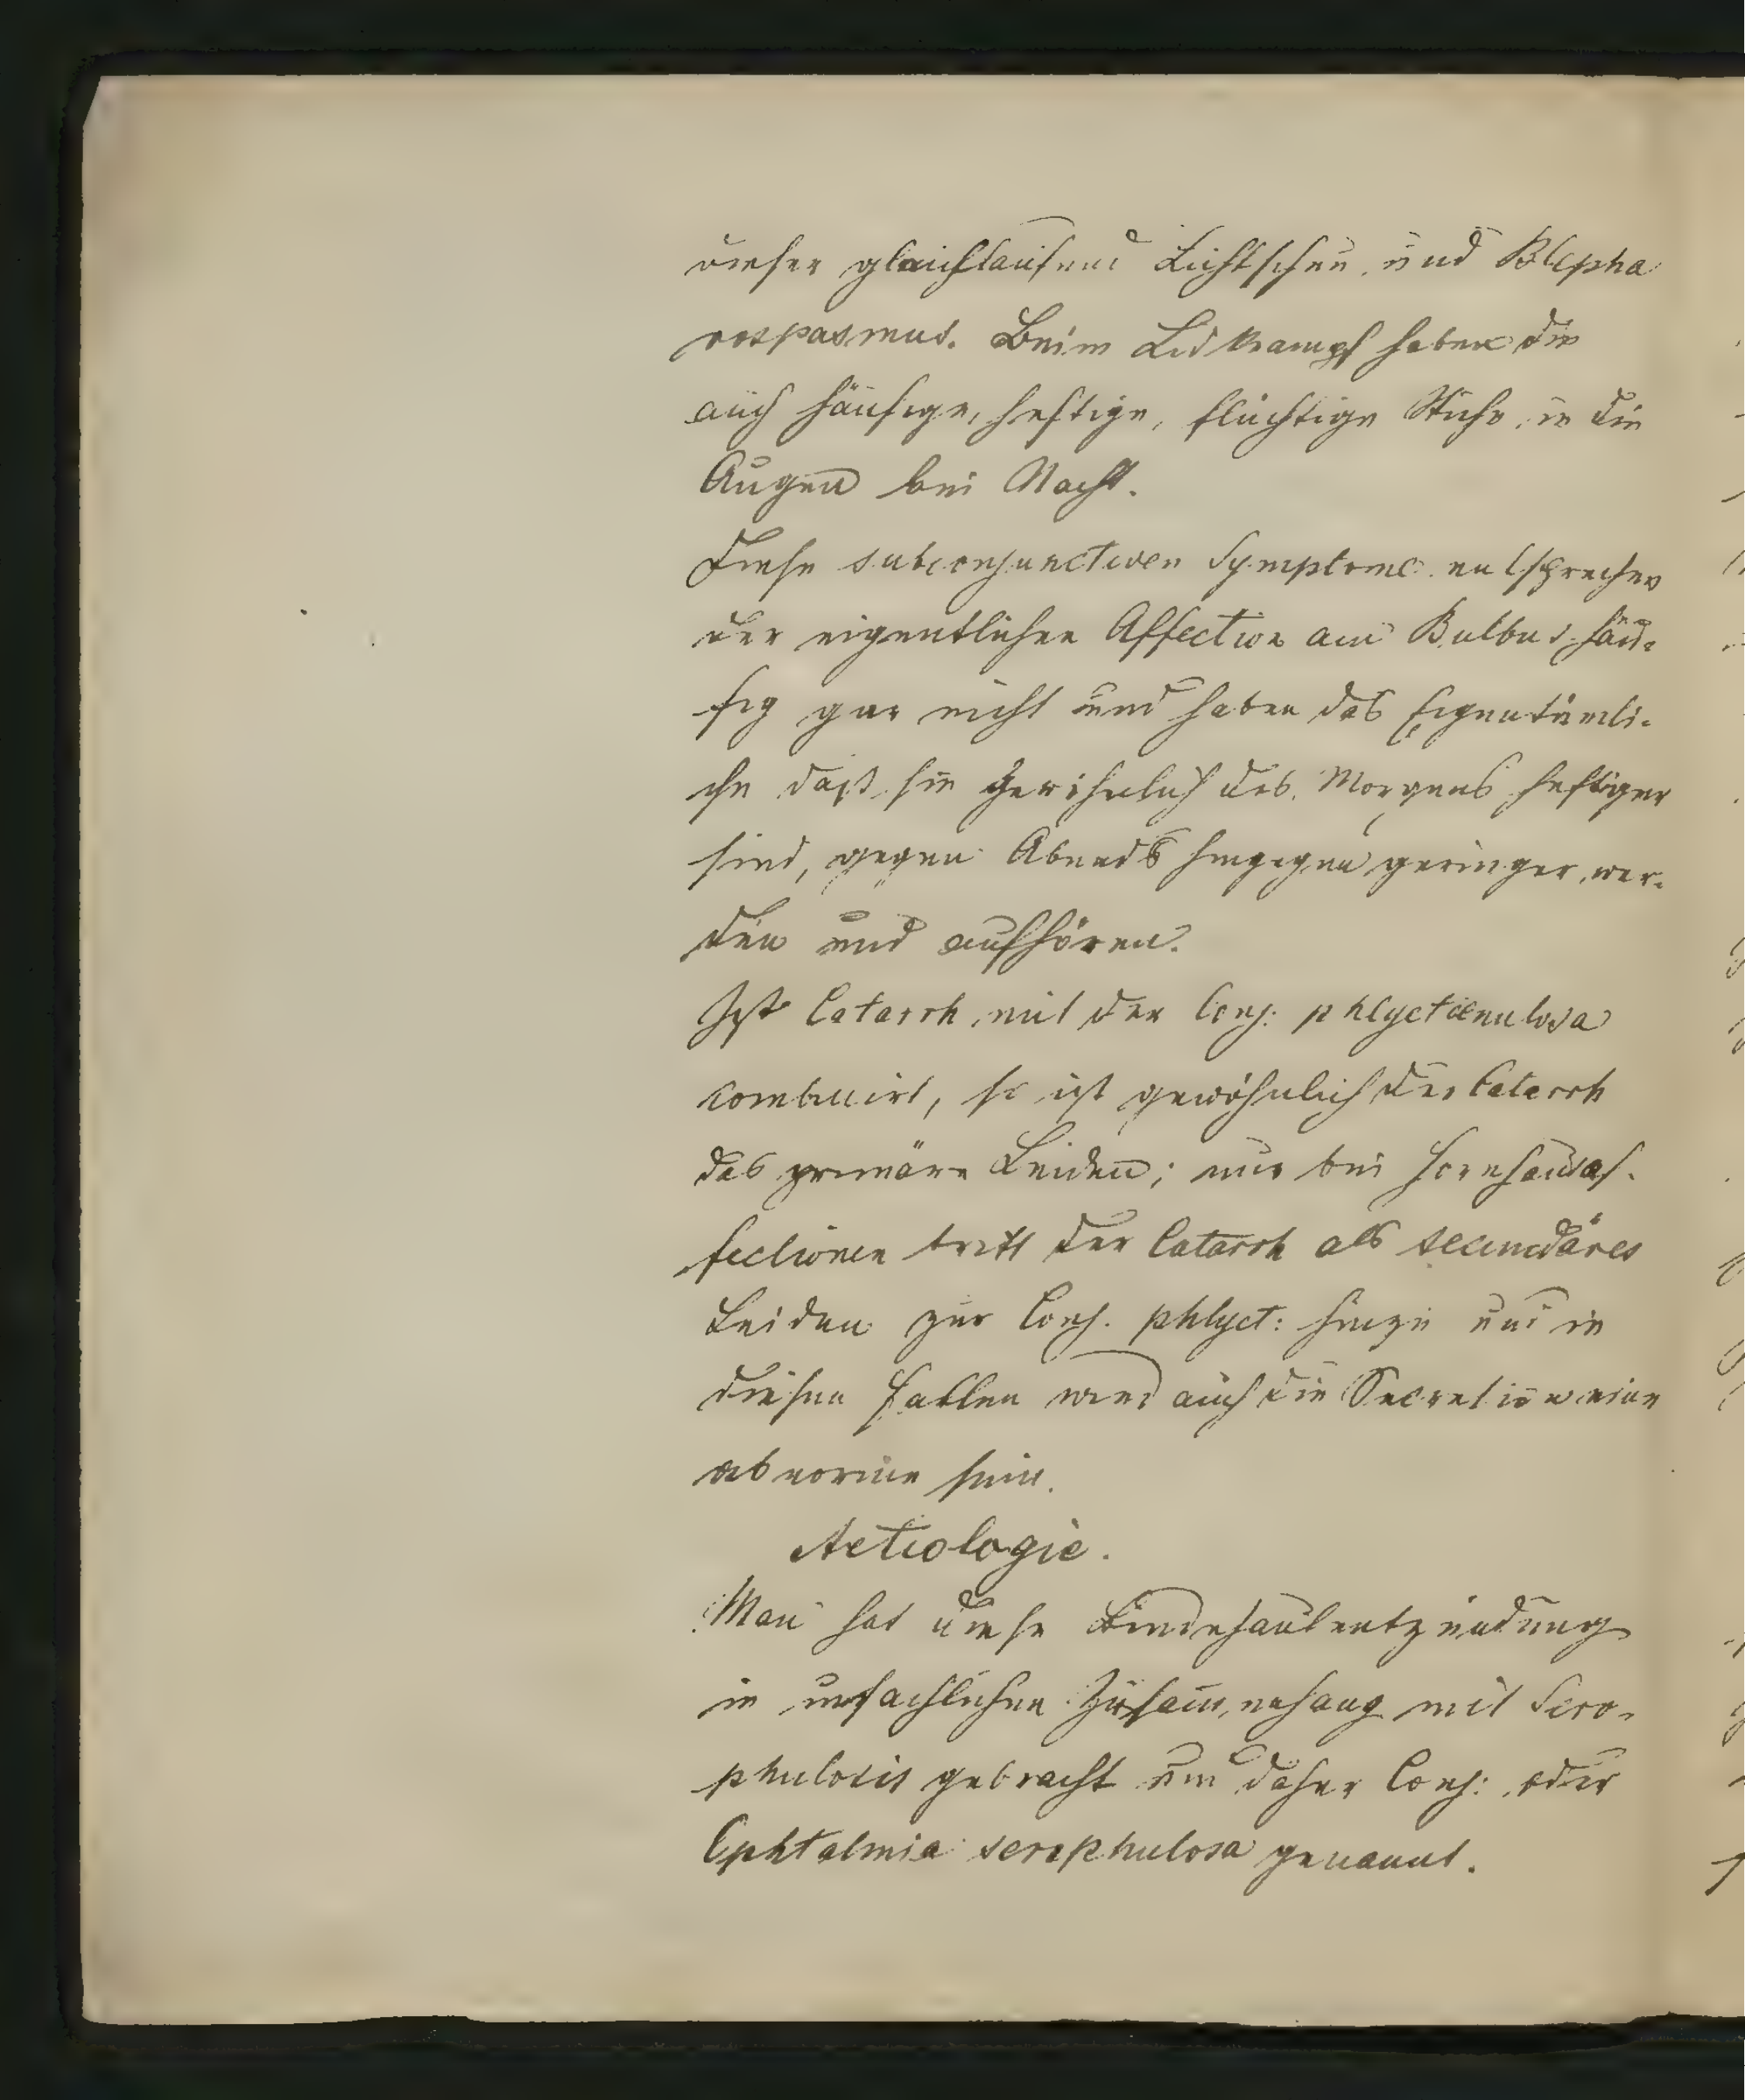 dieser gleichlaufend Lichtscheu und Blepha
rospasmus. Beim Lidkrampf haben die
auch häufige, heftige, flüchtige Stiche in die
Augen bei Nacht.
Diese subconjunctiven Symptome entsprechen
der eigentlichen Affection am Bulbus häu-
fig gar nicht und haben das Eigentümli-
che daß sie gewöhnlich des Morgens heftiger
sind, gegen Abends hingegen geringer wer-
den und aufhören.
Ist Catarrh mit der Conj: phlyctaenulosa
combinirt, so ist gewöhnlich der Catarrh
das primäre Leiden; nur bei Hornhautaf-
fectionen tritt der Catarrh als secundäres
Leiden zur Conj. phlyct: hinzu und in
diesen Fällen wird auch die Secretion eine
abnorme sein.
Aetiologie.
Man hat diese Bindehautentzündung
in ursachlichen Zusammenhang mit Scro-
phulosis gebracht und daher Conj: oder
Ophtalmia scrophulosa genannt.